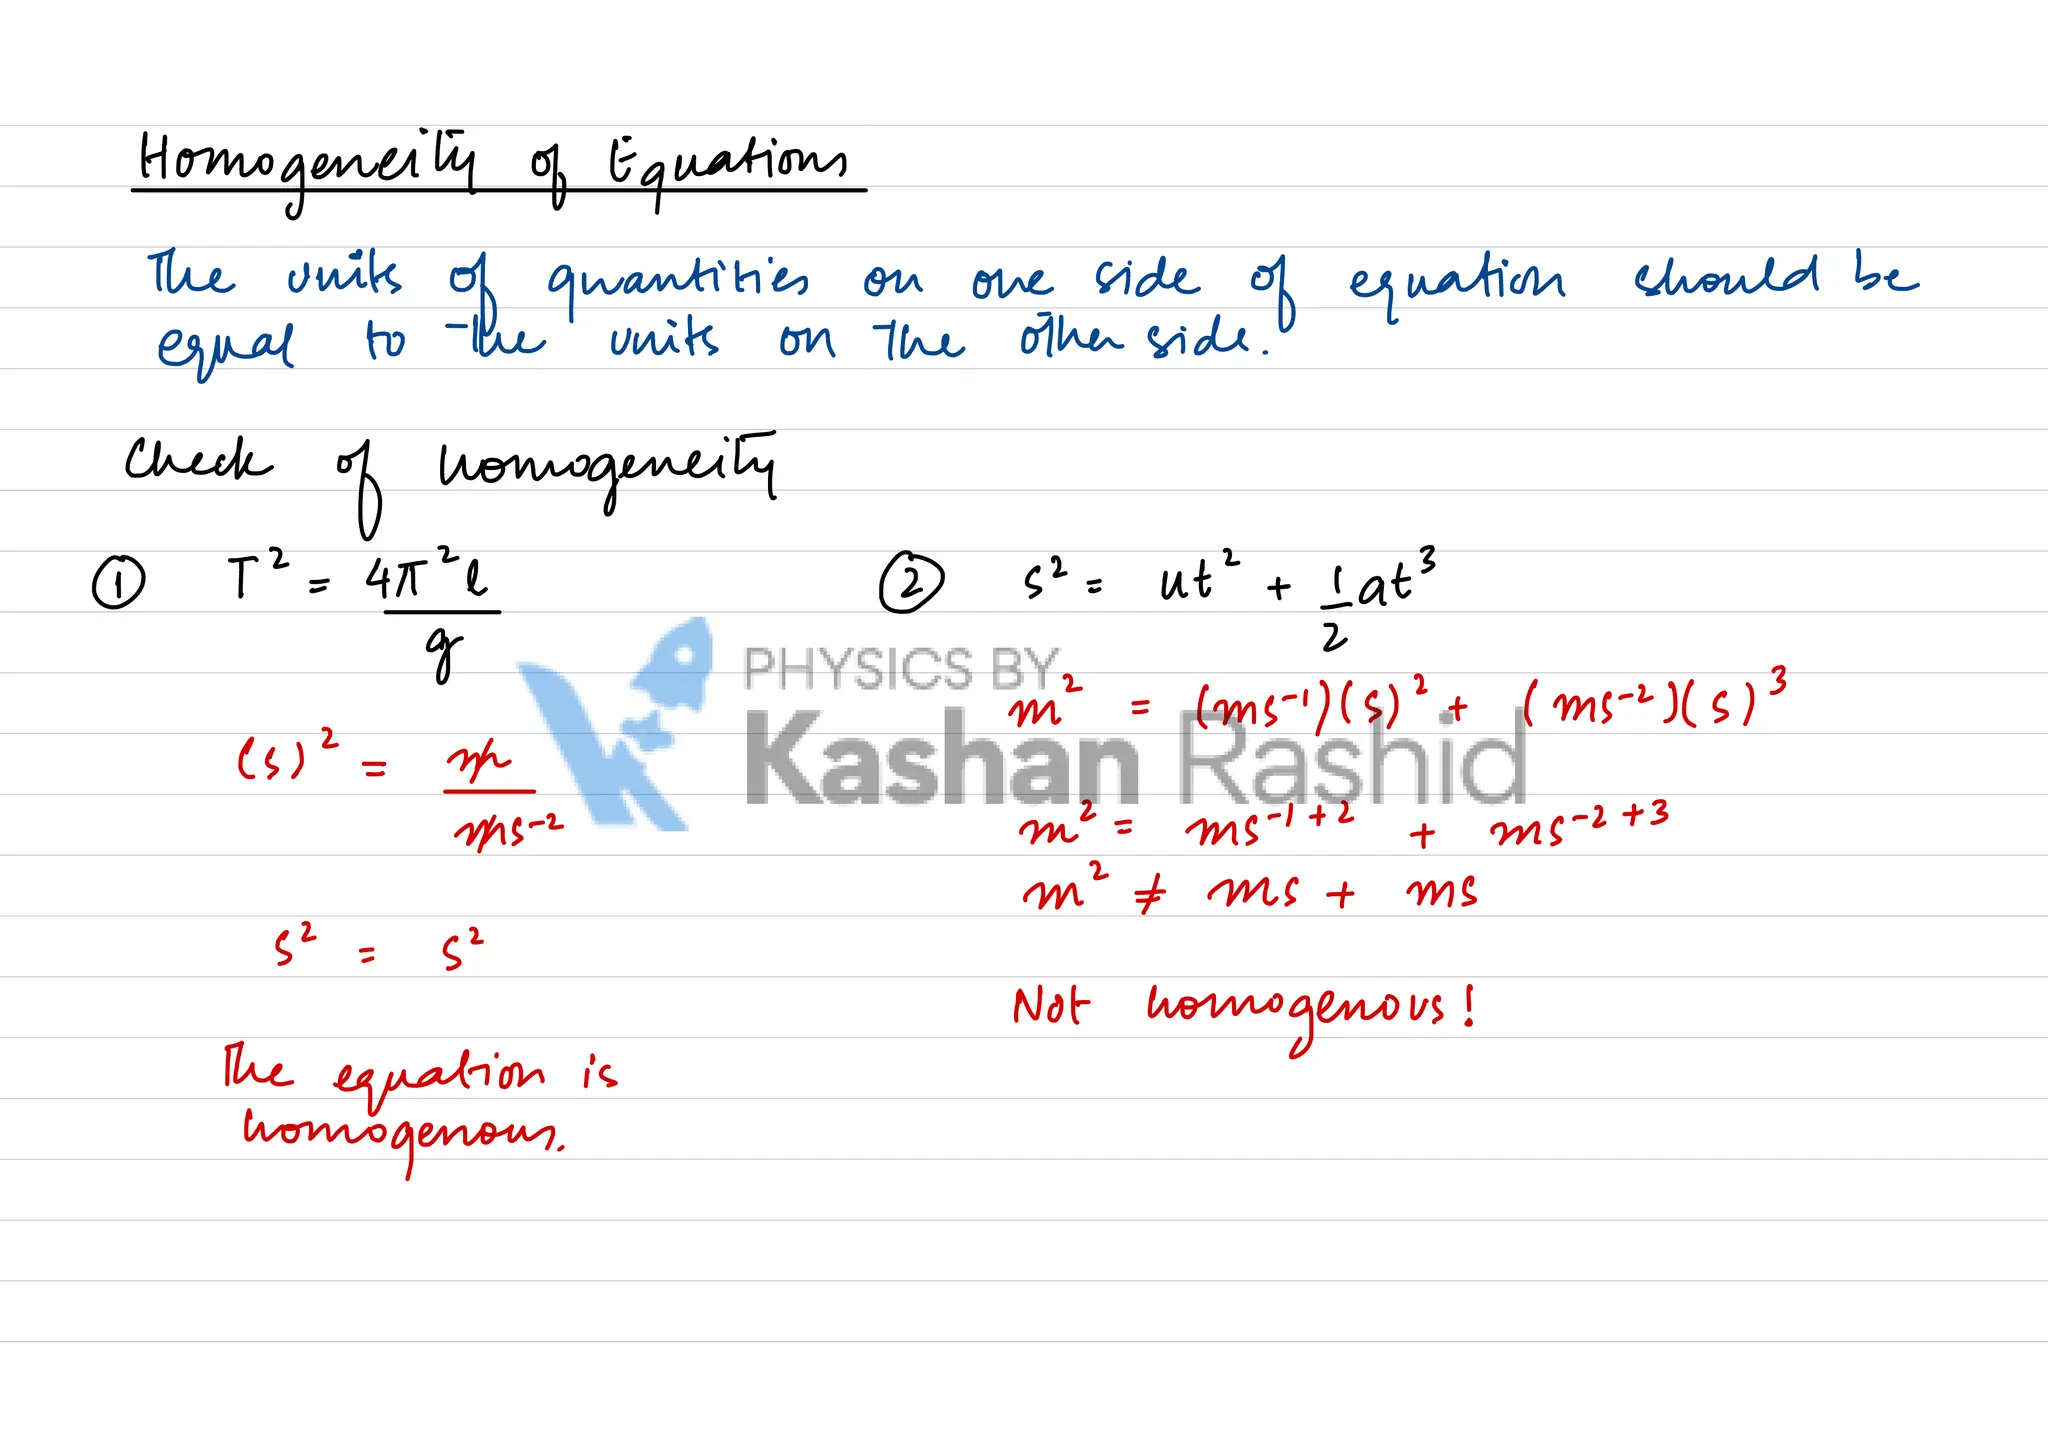 Homogeneity of Equations
The units of quantities on one side of equation should be
equal to the units on the other side.
Check of homogeneity
① T² = 4π²l / g
(s)² = m / ms⁻²
s² = s²
The equation is
homogenous.
② s² = ut² + 1/2 at³
m² = (ms⁻¹)(s)² + (ms⁻²)(s)³
m² = ms⁻¹⁺² + ms⁻²⁺³
m² ≠ ms + ms
Not homogenous!
PHYSICS BY
Kashan Rashid